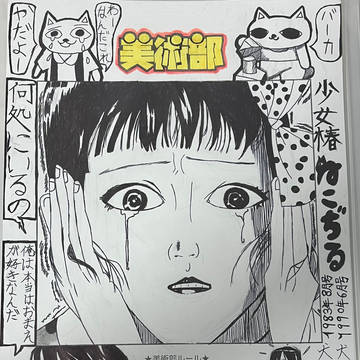 バーカ
美術部
わーなんだこれ
ヤだよー
少女椿
ねこぢる
1990年6月号
1983年8月号
何処にいるの
俺は本当はおまえ
が好きなんだ
★美術部ルール★